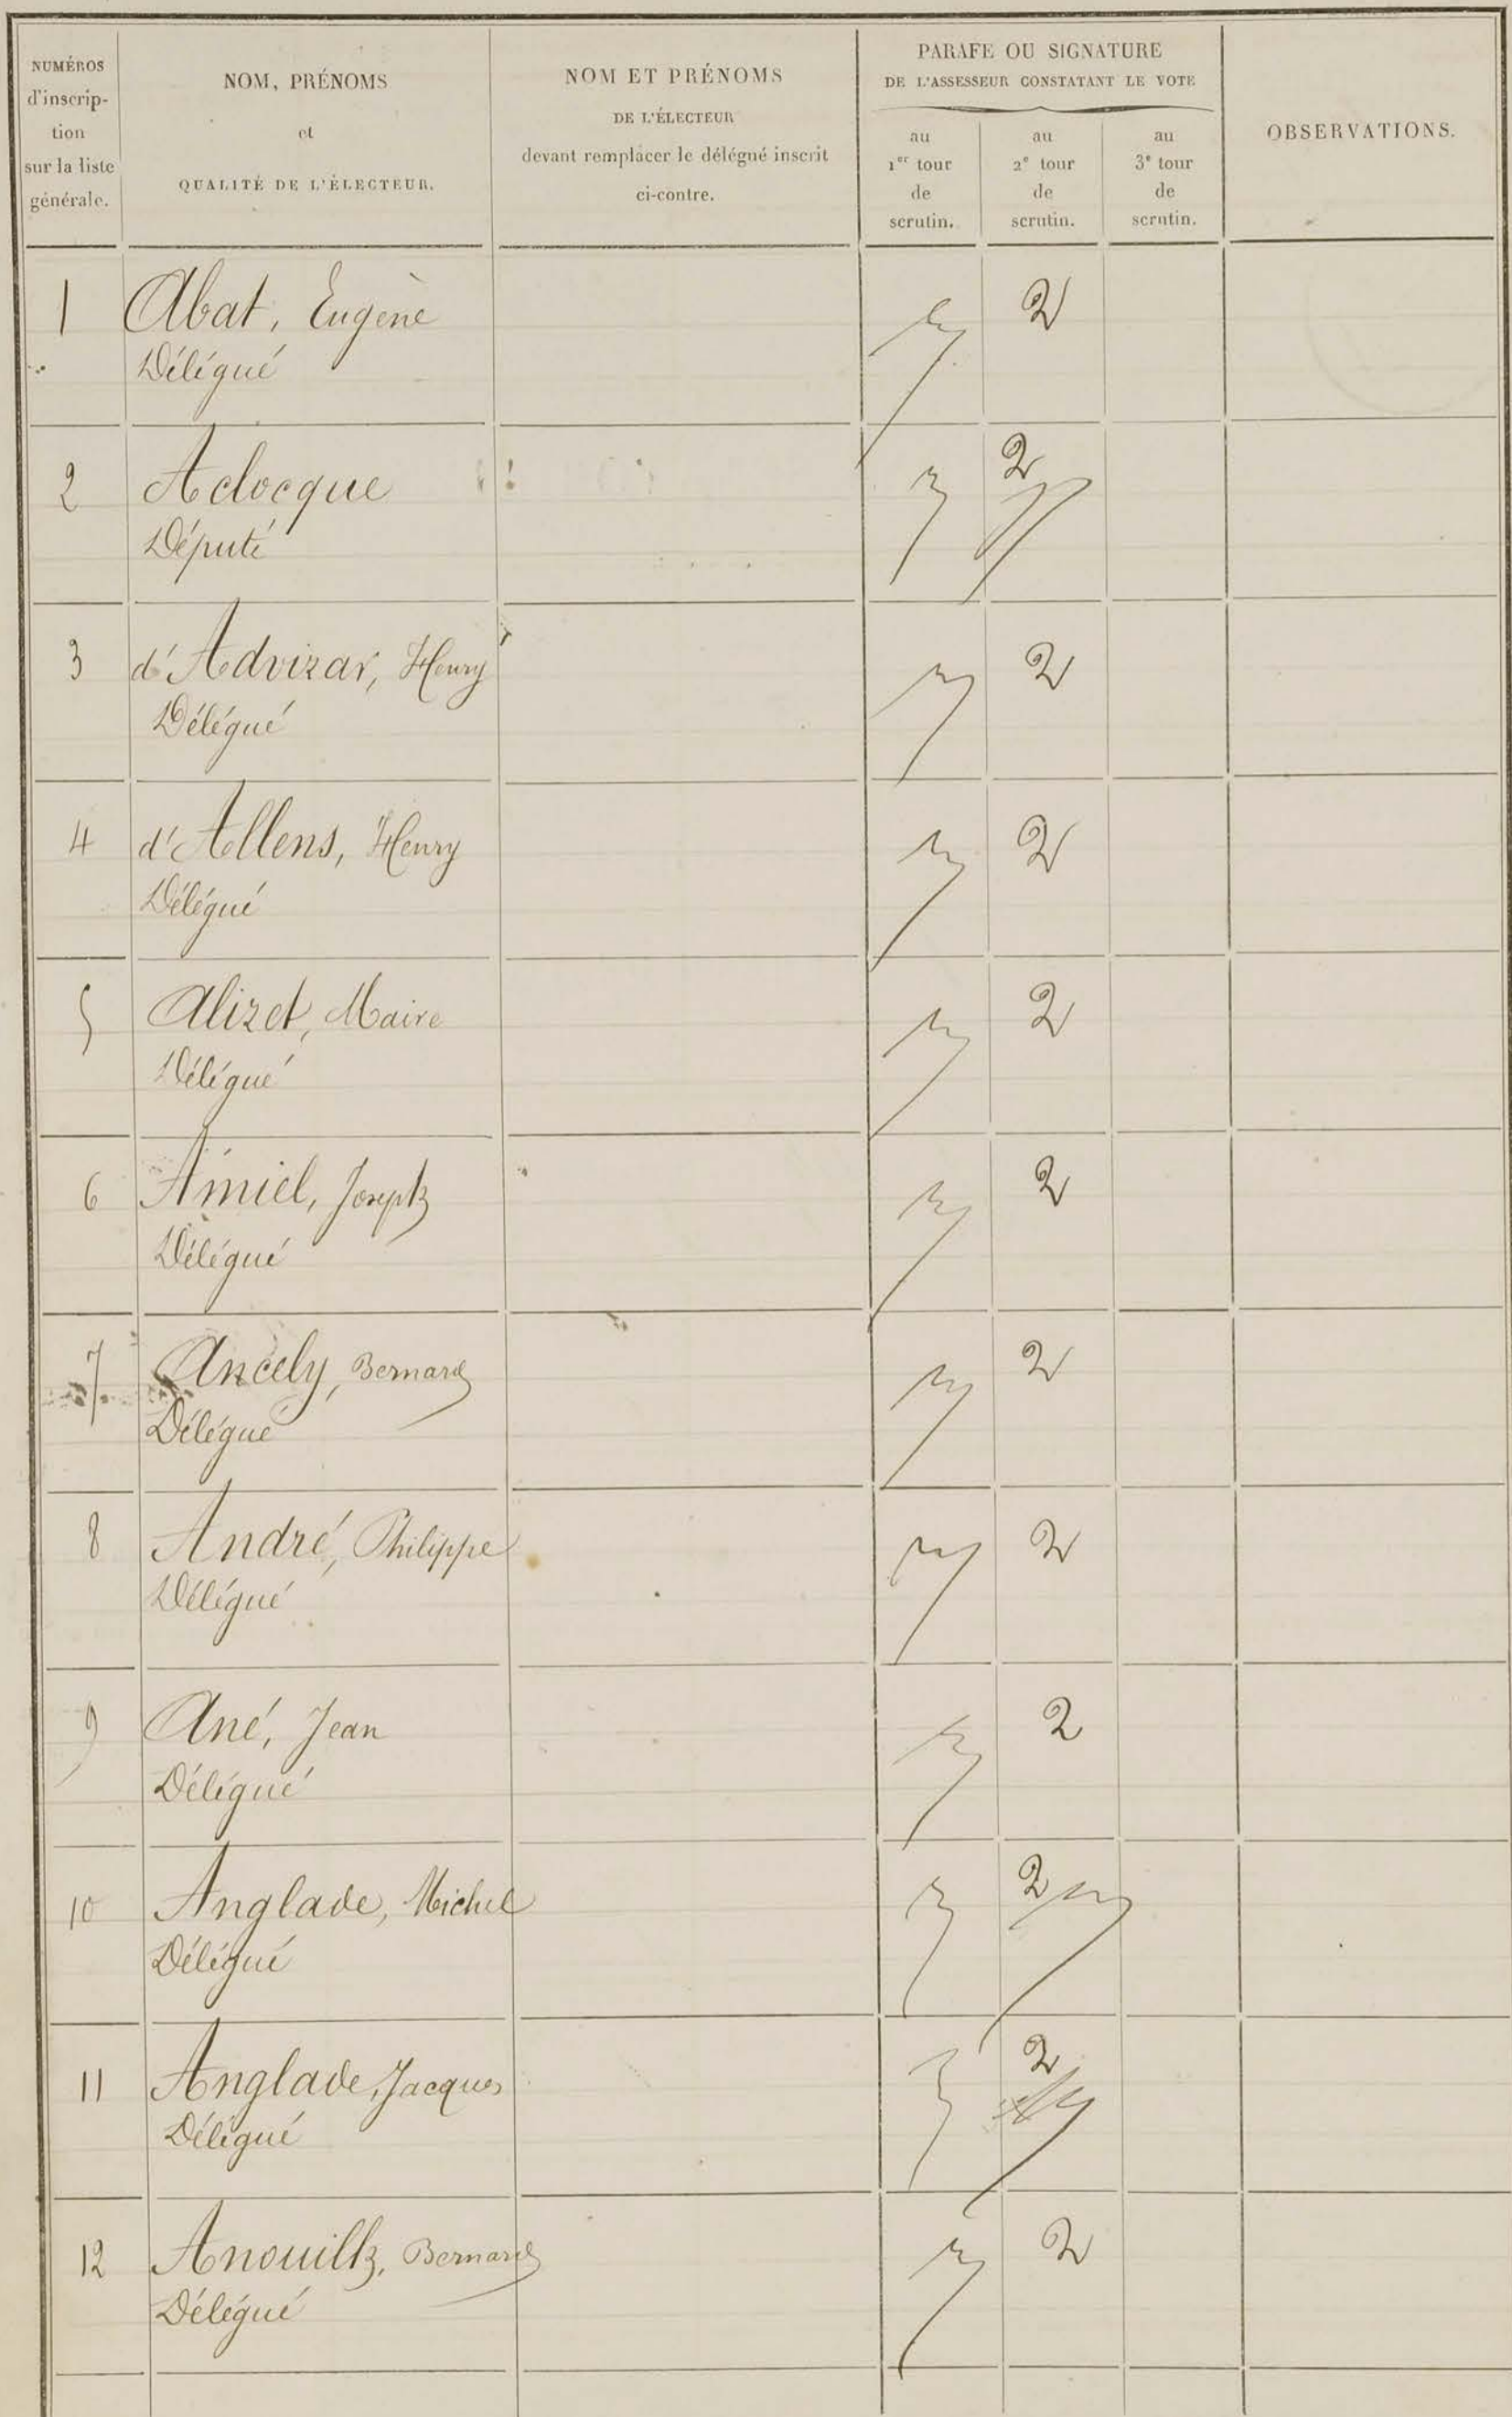 NUMÉROS
d'inscrip-
tion
sur la liste
générale.
NOM, PRÉNOMS
et
QUALITÉ DE L'ÉLECTEUR.
NOM ET PRÉNOMS
DE L'ÉLECTEUR
devant remplacer le délégué inscrit
ci-contre.
PARAFE OU SIGNATURE
DE L'ASSESSEUR CONSTATANT LE VOTE
au
1er tour
de
scrutin.
au
2e tour
de
scrutin.
au
3e tour
de
scrutin.
OBSERVATIONS.
1 Abat, Eugène 2
Délégué
2 Aclocque 2
Député
3 d'Advizar, Henry 2
Délégué
4 d'Allens, Henry 2
Délégué
5 Alizet, Maire 2
Délégué
6 Amiel, Joseph 2
Délégué
7 Ancely, Bernard 2
Délégué
8 André, Philippe 2
Délégué
9 Ané, Jean 2
Délégué
10 Anglade, Michel 2
Délégué
11 Anglade, Jacques 2
Délégué
12 Anouilh, Bernard 2
Délégué